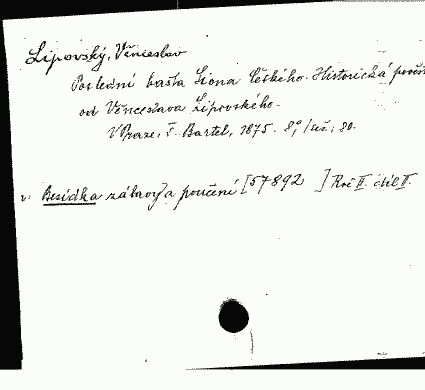 Lipovský, Věnceslav
Poslední bašta Siona Českého. Historická pověst
od Věnceslava Lipovského.
V Praze, F. Bartel, 1875. 8°, 80.
v: Besídka zábavy a poučení [57892 ] Roč II. díl II.